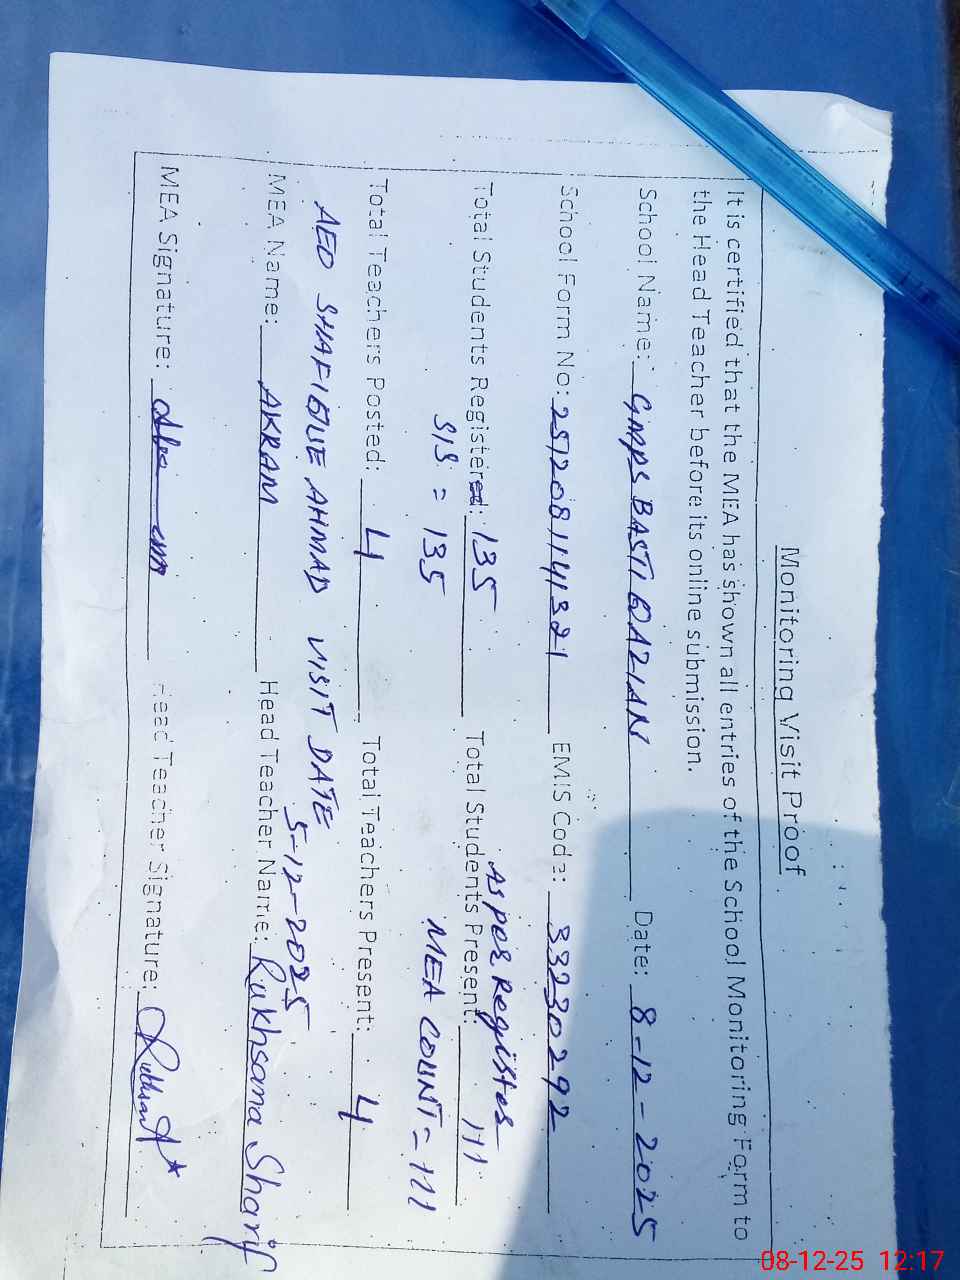 Monitoring Visit Proof
It is certified that the MEA has shown all entries of the School Monitoring Form to
the Head Teacher before its online submission.
School Name: GMPS BASTI QAZIAN Date: 8-12-2025
School Form No: 2512081141321 EMIS Code: 33230292
As per Register
Total Students Registered: 135 Total Students Present: 111
SIS = 135 MEA COUNT = 111
Total Teachers Posted: 4 Total Teachers Present: 4
AEO SHAFIQUE AHMAD VISIT DATE 5-12-2025
MEA Name: AKRAM Head Teacher Name: Rukhsana Sharif
MEA Signature: Head Teacher Signature:
08-12-25 12:17